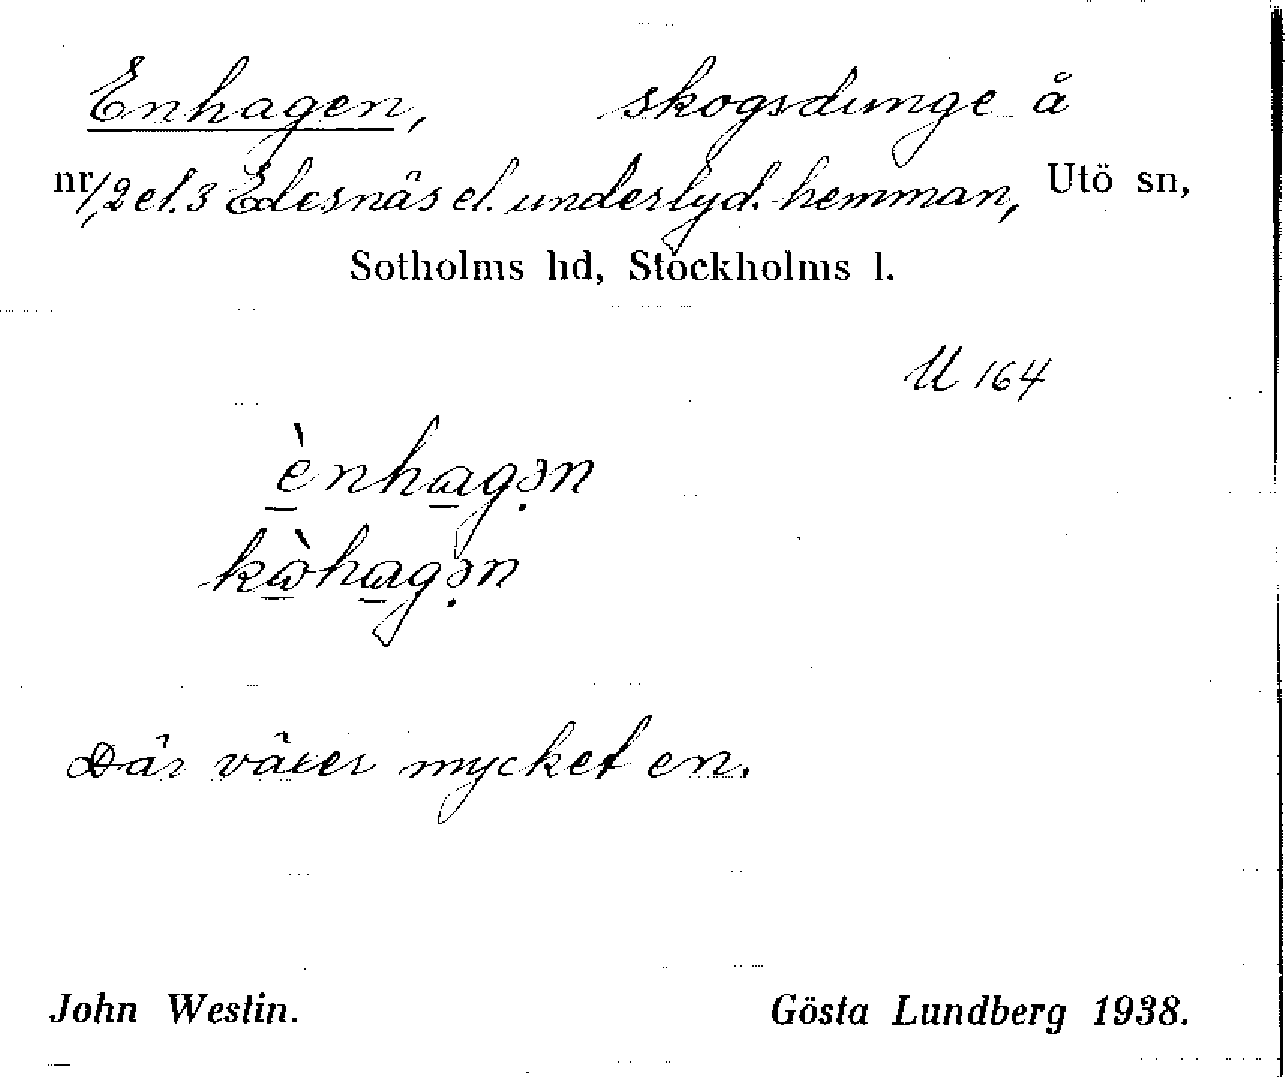 Enhagen, skogsdunge å
nr 1, 2 el. 3 Edesnäs el. underlyd. hemman, Utö sn,
Sotholms hd, Stockholms l.
U 164
ènhagə̣n
kὼhagə̣n
Där växer mycket en.
John Westin. Gösta Lundberg 1938.